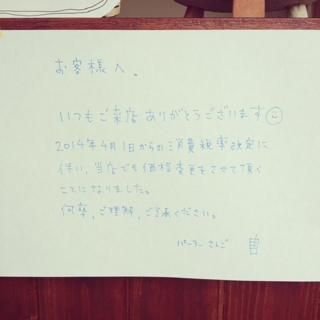 お客様へ。
いつもご来店ありがとうございます
2014年4月1日からの消費税率改定に
伴い、当店でも価格変更をさせて頂く
ことになりました。
何卒、ご理解、ご了承ください。
パーラー さんご